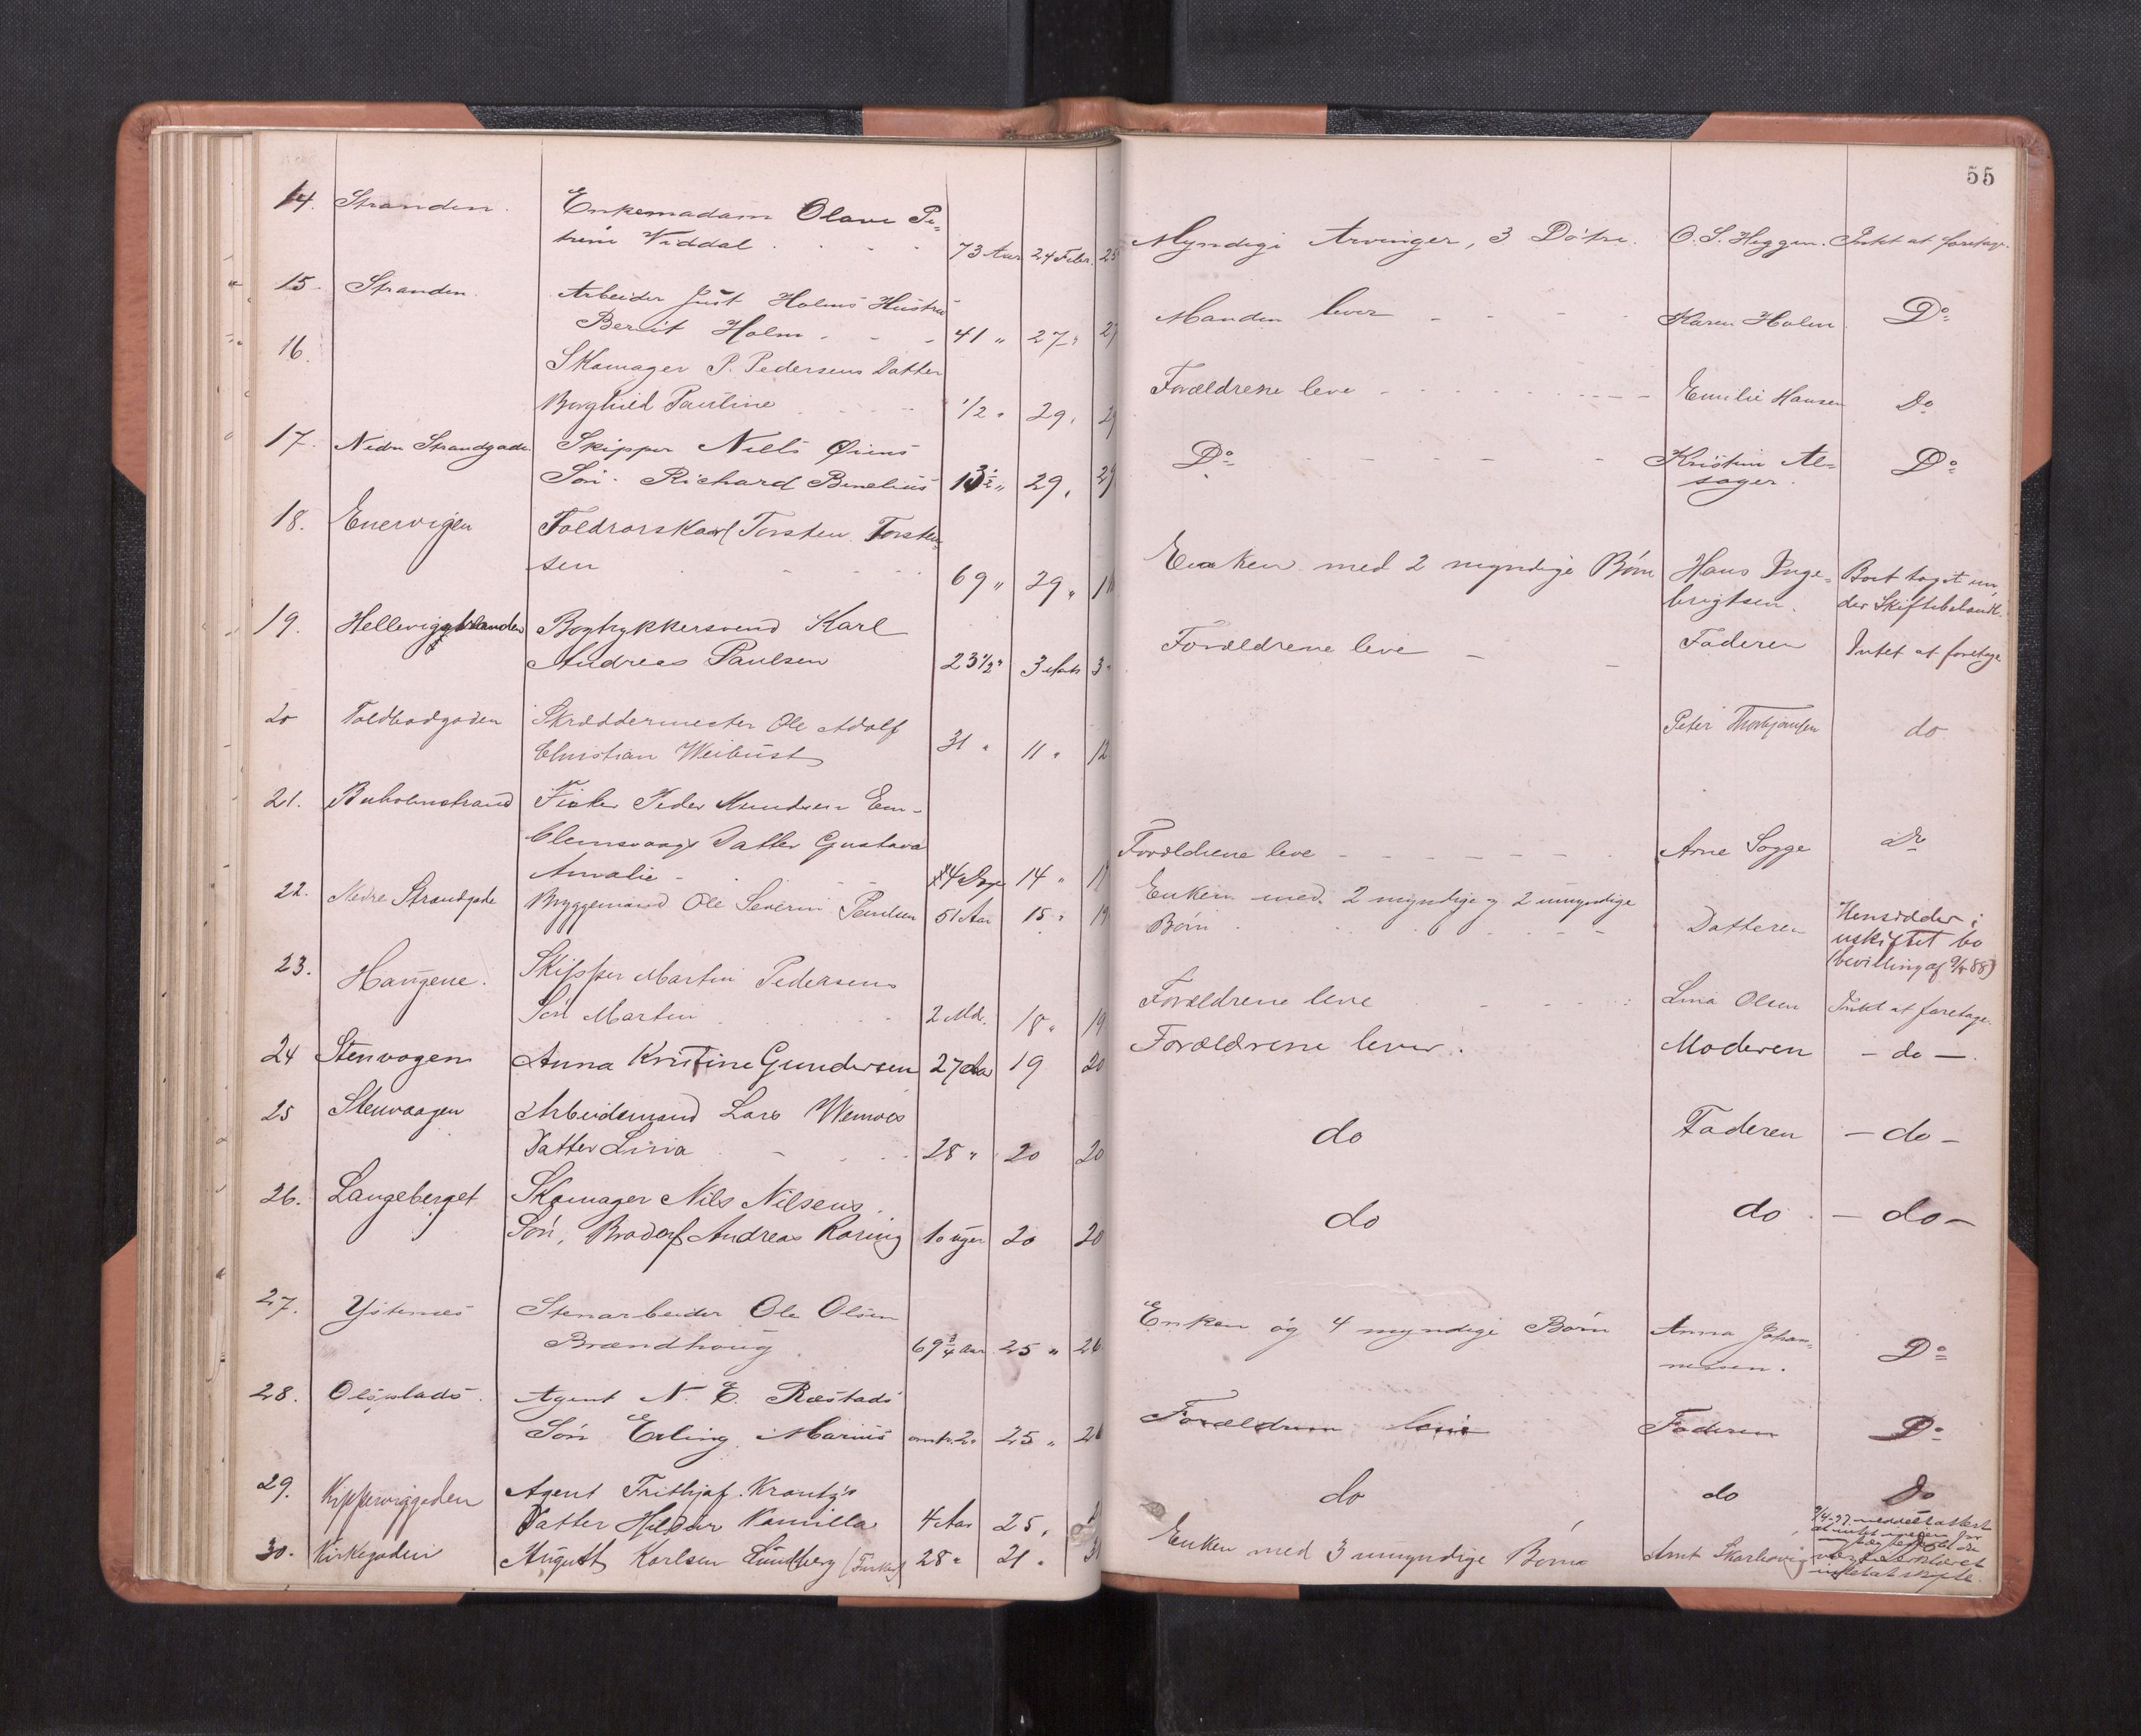 55
14. Stranden. Enkemadam Olave Pe-
trine Viddal 73 Aar 24 Febr. 25 Myndige Arvinger, 3 Døtre. O. S. Heggen. Intet at foretage.
15. Stranden. Arbeider Just Holms Hustru
Berit Holm 41 " 27 " 27 Manden lever Karen Holm Do
16. Skomager P. Pedersens Datter
Borghild Pauline 1/2 " 29 " 29 Forældrene leve Emilie Hansen Do
17. Nedre Strandgade Skipper Niels Øiens
Søn Richard Benelius 13 1/2 " 29 " 29 Do Kristine Al-
sager.
Do
18. Enervigen Toldrorskarl Torsten Torsten-
sen 69 " 29 " Enken med 2 myndige Børn Hans Inge-
brigtsen.
Boet taget un-
der Skiftebehandl.
19. Hellevigstranden Bogtrykkersvend Karl
Andreas Paulsen 23 1/2 " 3 Marts 3 Forældrene leve Faderen Intet at foretage
20 Toldbodgaden Skræddermester Ole Adolf
Christian Weibust 31 " 11 " 12 Peter do
21. Buholmstrand Fisker Peder Knudsen Em-
blemsvaags Datter Gustava
Amalie 14 " Forældrene leve Arne Sogge Do
22. Nedre Strandgade Bryggemand Ole Severin Paulsen 51 Aar 15 " 19 Enken med 2 myndige og 2 umyndige
Børn Datteren Hensidder i
uskiftet bo
(bevilling af 88)
23. Haugene. Skipper Martin Pedersens
Søn Martin 2 Mdr. 18 " 19 Forældrene leve Lina Olsen Intet at foretage.
24 Stenvogen Anna Kristine Gundersen 27 Aar 19 20 Forældrene lever. Moderen - do -
25 Stenvaagen Arbeidsmand Lars
Datter Livia 28 " 20 20 do Faderen - do -
26. Langeberget Skomager Nils Nilsens
Søn, Brodorf Andreas 10 uger 20 20 do do - do -
27. Ystenes Stenarbeider Ole Olsen
Brændhoug 69 3/4 Aar 25 " 26 Enken og 4 myndige Børn Anna Johan-
nessen.
Do
28. Olsplads. Agent N. E. Ræstads
Søn Erling Marius omtr. 2 25 " 26 Forældrene leve Faderen Do
29. Kipperviggaden Agent Frithjof Krantz's
Datter Hildur Kamilla 4 Aar 25 " do do Do
30. Kirkegaden August Karlsen Lundberg 28 " 21 " Enken med 3 umyndige Børn Arnt Skarbøvig